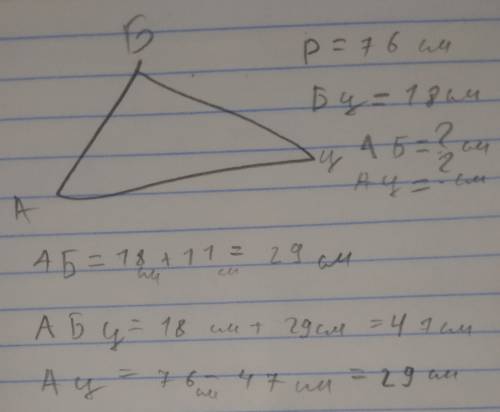 Б
P = 76 см
Бц = 18 см
АБ = ? см
Ац = ? см
А
ц
АБ = 18 см + 11 см = 29 см
АБц = 18 см + 29 см = 47 см
Ац = 76 см - 47 см = 29 см